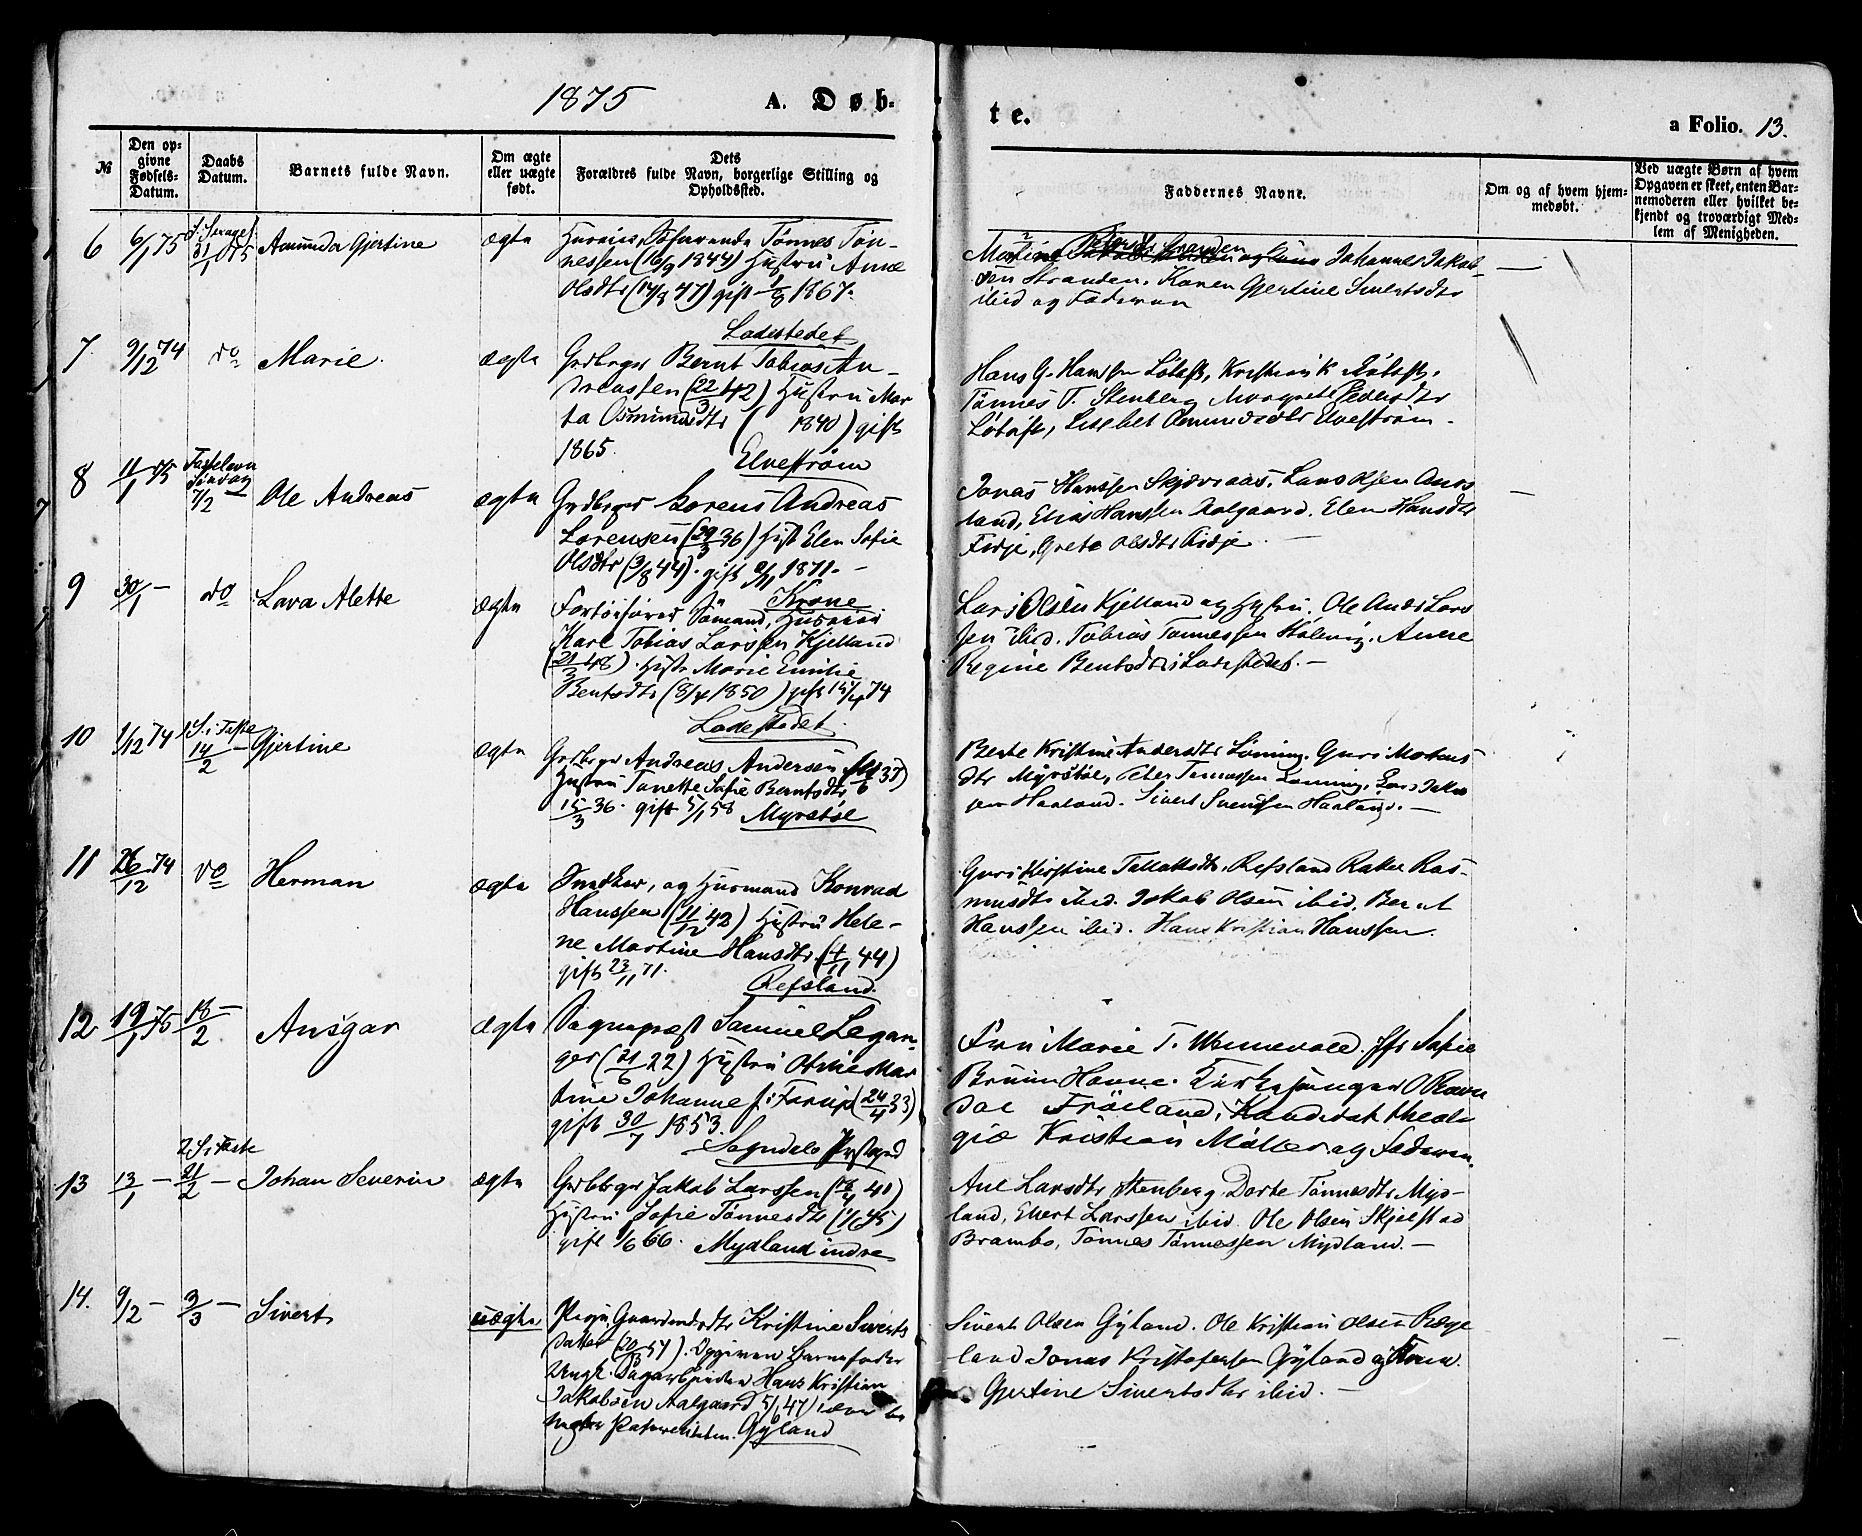 1875 A. Døb-
te.
a Folio. 13.
№
Den op-
givne
Fødsels-
Datum.
Daabs
Datum.
Barnets fulde Navn.
Om ægte
eller uægte
født.
Dets
Forældres fulde Navn, borgerlige Stilling og
Opholdssted.
Faddernes Navne.
Om og af hvem hjem-
medøbt.
Ved uægte Børn af hvem
Opgaven er skeet, enten Bar-
nemoderen eller hvilket be-
kjendt og troværdigt Med-
lem af Menigheden.
6 6/1 75 31/1 075 Amunda Gjertine ægte Tønnes Tøn-
nessen (16/9 1844) Hustru Anne
Olsdtr (14/3 47) gift 1867.
Ladestedet
Martine Johannes Jakob-
sen Stranden. Karen Gjertine Sivertsdtr
ibid og Faderen
7. 9/12 74 do Marie. ægte Grdbrger Bernt Tobias An-
dreassen (22/3 42) Hustru Mar
ta Osmundsdtr ( 1840) gift
1865. Elvestrøm
Hans G. Hanssen Løtoft, Kristian K
Tønnes T. Stenberg Margrete Pedersdtr
Løtoft, Lisebet Osmundsdtr Elvestrøm.
8 11/1 75 Fastelavn
Søndag
7/2 Ole Andreas ægte Grdbrger Lorens Andreas
Lorensen (29/3 36) Hust Elen Sofie
Olsdtr (3/8 44). gift 1871.
Krone
Jonas Hanssen Skjævraas, Lars
land, Elias Hanssen Aalgaard. Elen Hansdtr
Fidje, Grete Olsdtr Fidje
9 30/1 - do Lava Alette ægte Fartøifører Sømand,
Karl Tobias Larssen Kjelland
(21/3 48). Hustr Marie Emilie
Bentsdtr (8/4 1850) gift 15/4 74
Ladestedet.
Lars Olsen Kjelland og Hustru, Ole Ands Lars
sen ibid. Tobias Tønnessen Anne
Regine Bentsdtr Ladestedet.
10 1/12 74 1 S. i Faste
14/2 - Gjertine ægte Grdbrger Andreas Andersen
Hustru Tonette Sofie Berntsdtr
15/3 36. gift 5/1 58 Myrstøl
Berte Kristine Andersdtr Lønning. Guri Mortens
dtr Myrstøl, Peter Tønnessen Lønning, Lars Jakob
sen Haaland. Sivert Svendsen Haaland.
11 26/12 74 do Herman ægte Snedker, og Husmand Konrad
Hanssen (11/2 42) Hustru Hele-
ne Martine Hansdtr (4/11 44)
gift 23/11 71. Refsland.
Guri Kirstine Tallaksdtr, Refsland Rakel Ras-
musdtr ibid. Jakob Olsen ibid. Bernt
Hanssen ibid. Hans Kristian Hanssen.
12 19/1 75 18/2 - Ansgar ægte Sognepræst Samuel Legan-
ger (21/6 22) Hustru Otilie Mar
tine Johanne f. Farup (24/4 33)
gift 30/7 1853.
Sogndals Præstegrd
Fru Marie T. Wennevold. Sofie
Bruun Hanne. Kirkesanger O Ravn
dal Frøiland, Kandidat theolo
giæ Kristian Møller og Faderen.
13 13/1 - 2 S. i Faste
21/2 - Johan Severin ægte Grdbrger Jakob Larssen
Hustru Sofie Tønnesdtr (1/6 45)
gift 1/6 66. Mydland indre
Ane Larsdtr Stenberg, Dorte Tønnesdtr Myd-
land, Elert Larssen ibid. Ole Olsen Skjelstad
Brambo, Tønnes Tønnessen Mydland.
14. 9/2 - 3/3 - Sivert uægte Pige, Gaardmdsdtr Kristine Siverts
datter 57). Opgiven Barnefader
Ungk. Dagarbeider Hans Kristian
Jakobsen Aalgaard 5/6 47)
Paterniteten. Gyland
Sivert Olsen Gyland. Ole Kristian Olsen Rege
land Jonas Kristofersen Gyland og
Gjertine Sivertsdtr ibid.